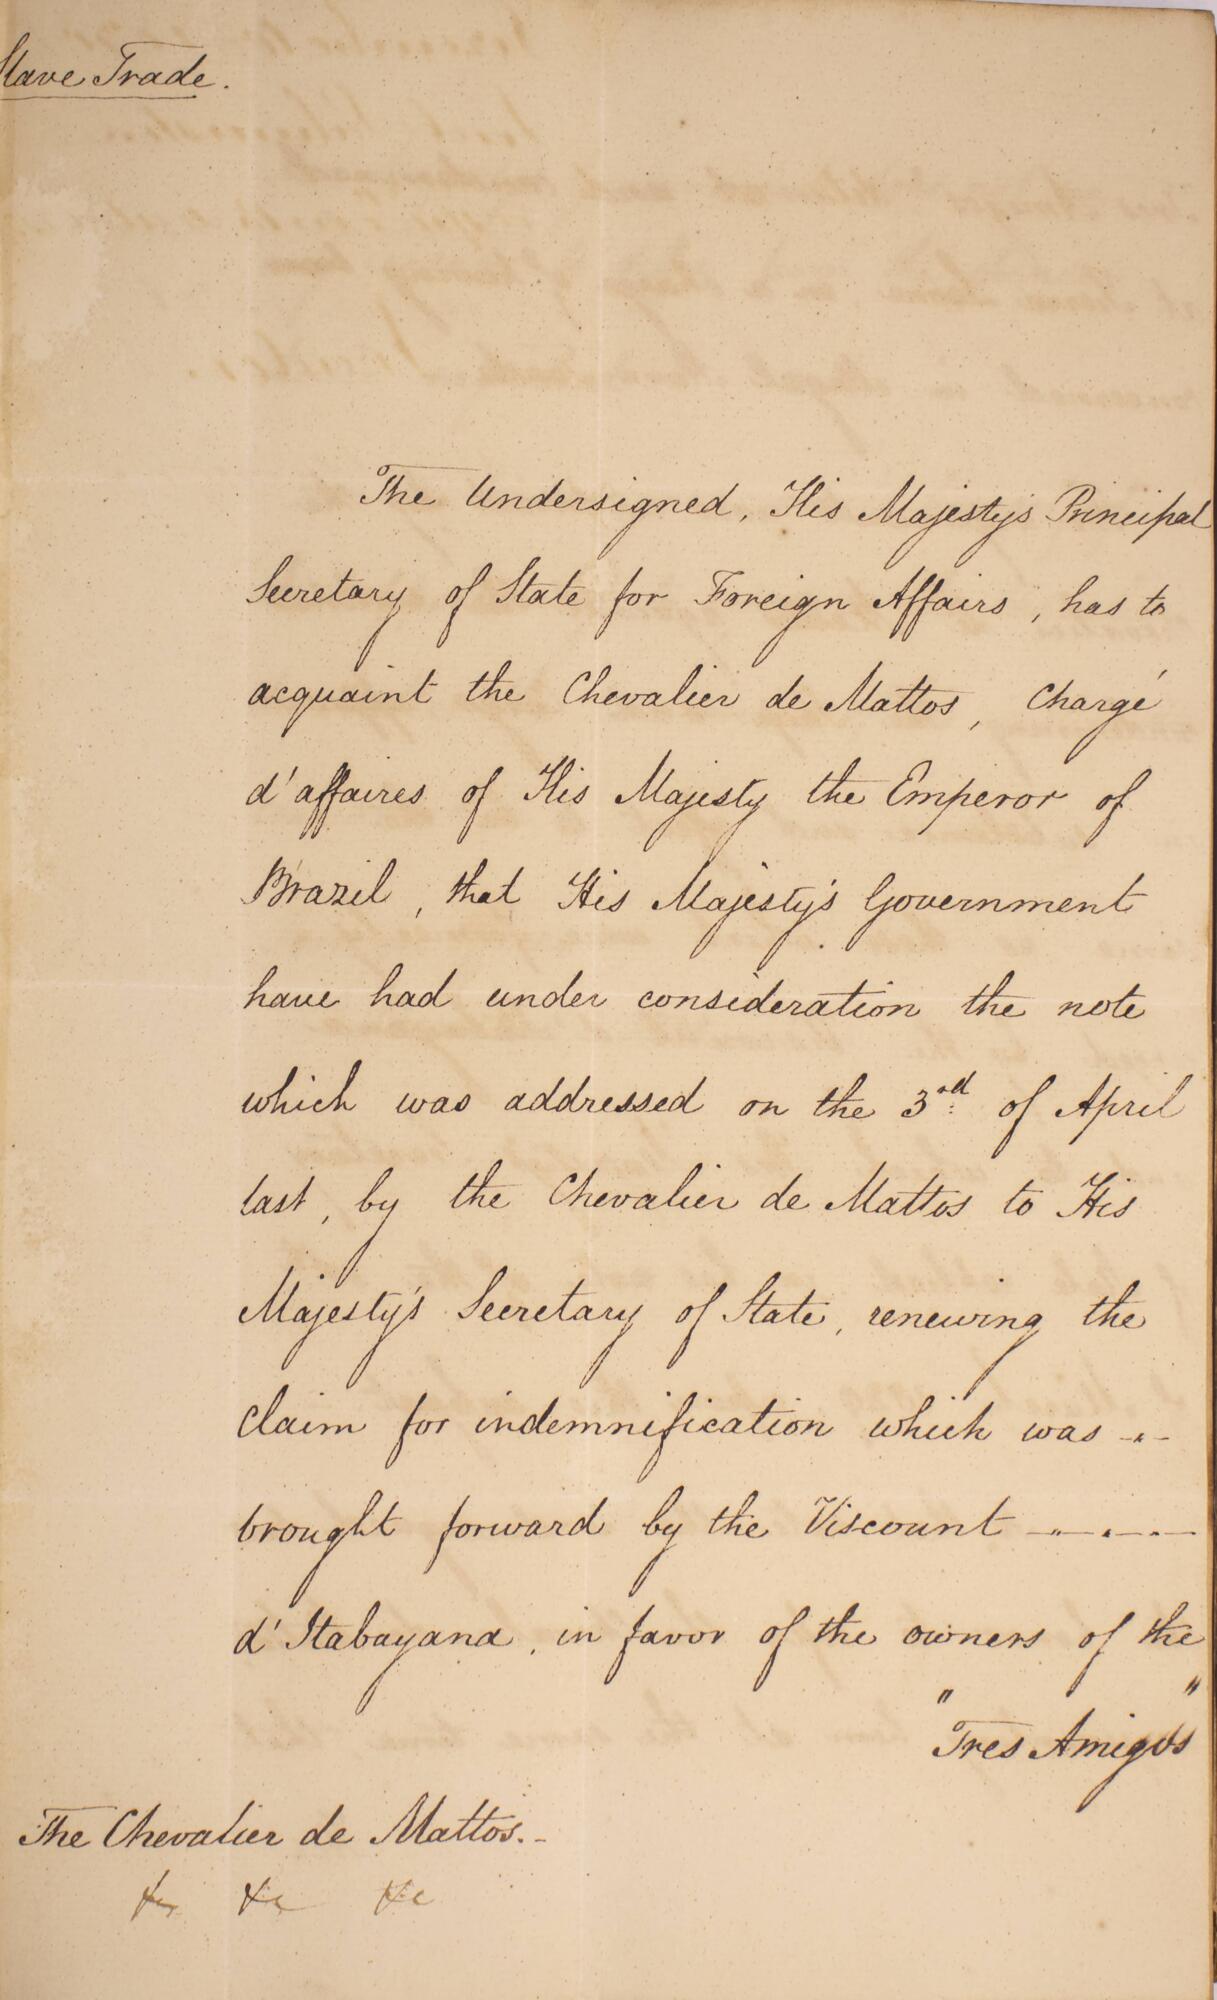 Slave Trade.
The Undersigned, His Majesty's Principal
Secretary of State for Foreign Affairs, has to
acquaint the Chevalier de Mattos, Chargé
d'affaires of His Majesty the Emperor of
Brazil, that His Majesty's Government
have had under consideration the note
which was addressed on the 3rd of April
last, by the Chevalier de Mattos to His
Majesty's Secretary of State, renewing the
claim for indemnification which was
brought forward by the Viscount
d'Itabayana, in favor of the owners of the
"Tres Amigos"
The Chevalier de Mattos.-
&c &c &c